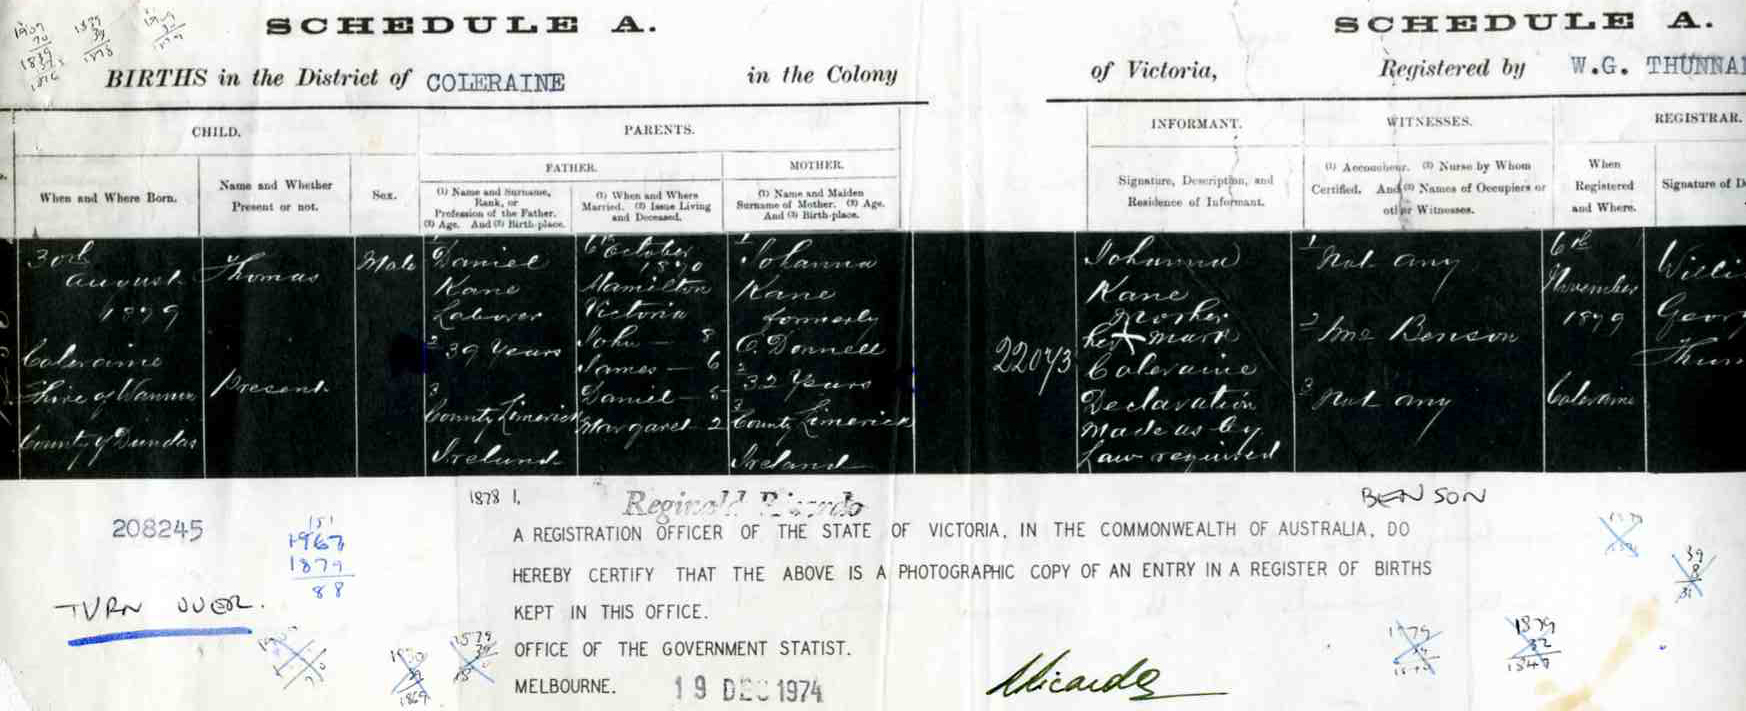 SCHEDULE A.
BIRTHS in the District of COLERAINE in the Colony
SCHEDULE A.
of Victoria, Registered by W.G. THUNNA
CHILD.
PARENTS.
FATHER.
MOTHER.
When and Where Born.
Name and Whether
Present or not.
Sex.
(1) Name and Surname,
Rank, or
Profession of the Father.
(2) Age. And (3) Birth-place.
(1) When and Where
Married. (2) Issue Living
and Deceased.
(1) Name and Maiden
Surname of Mother. (2) Age.
And (3) Birth-place.
INFORMANT.
WITNESSES.
REGISTRAR.
Signature, Description, and
Residence of Informant.
(1) Accoucheur. (2) Nurse by Whom
Certified. And (3) Names of Occupiers or
other Witnesses.
When
Registered
and Where.
Signature of D
30th
August
1879
Coleraine
Shire of Wannon
County of Dundas
Thomas
Present
Male
1
Daniel
Kane
Laborer
2
39 Years
3
County Limerick
Ireland
6th October
1870
Hamilton
Victoria
John — 8
James — 6
Daniel — 5
Margaret 2
1
Johanna
Kane
formerly
O'Donnell
2
32 Years
3
County Limerick
Ireland
22073
Johanna
Kane
Mother
her X mark
Coleraine
Declaration
Made as by
Law required
1 Not any
2 Mrs Benson
3 Not any
6th
November
1879
Coleraine
Willi
Geor
Thun
208245
1967
1879
88
TURN OVER.
1878 I,
Reginald Ricardo
A REGISTRATION OFFICER OF THE STATE OF VICTORIA, IN THE COMMONWEALTH OF AUSTRALIA, DO
HEREBY CERTIFY THAT THE ABOVE IS A PHOTOGRAPHIC COPY OF AN ENTRY IN A REGISTER OF BIRTHS
KEPT IN THIS OFFICE.
OFFICE OF THE GOVERNMENT STATIST.
MELBOURNE. 19 DEC 1974
BENSON
1879
32
1847